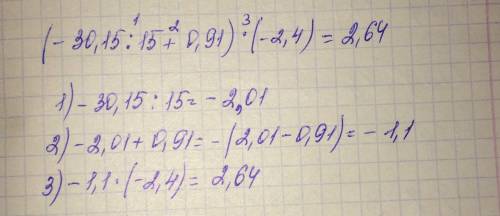 (-30,15 :¹ 15 +² 0,91) ·³ (-2,4) = 2,64
1) -30,15 : 15 = -2,01
2) -2,01 + 0,91 = -(2,01 - 0,91) = -1,1
3) -1,1 · (-2,4) = 2,64